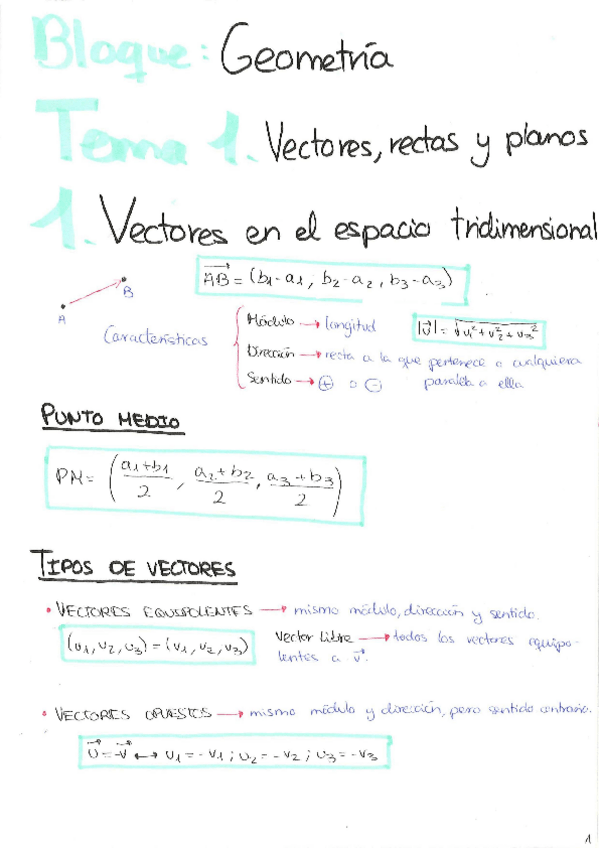 Bloque: Geometría
Tema 1. Vectores, rectas y planos
1. Vectores en el espacio tridimensional
AB = (b1-a1, b2-a2, b3-a3)
A B
Características
Módulo → longitud |U| = √u1²+u2²+u3²
Dirección → recta a la que pertenece o cualquiera
paralela a ella
Sentido → + o -
PUNTO MEDIO
PM = (a1+b1/2, a2+b2/2, a3+b3/2)
TIPOS DE VECTORES
• VECTORES EQUIPOLENTES → mismo módulo, dirección y sentido.
(u1, u2, u3) = (v1, v2, v3) Vector Libre → todos los vectores equipo-
lentes a v.
• VECTORES OPUESTOS → mismo módulo y dirección, pero sentido contrario.
U = -V ↔ u1 = -v1; u2 = -v2; u3 = -v3
1